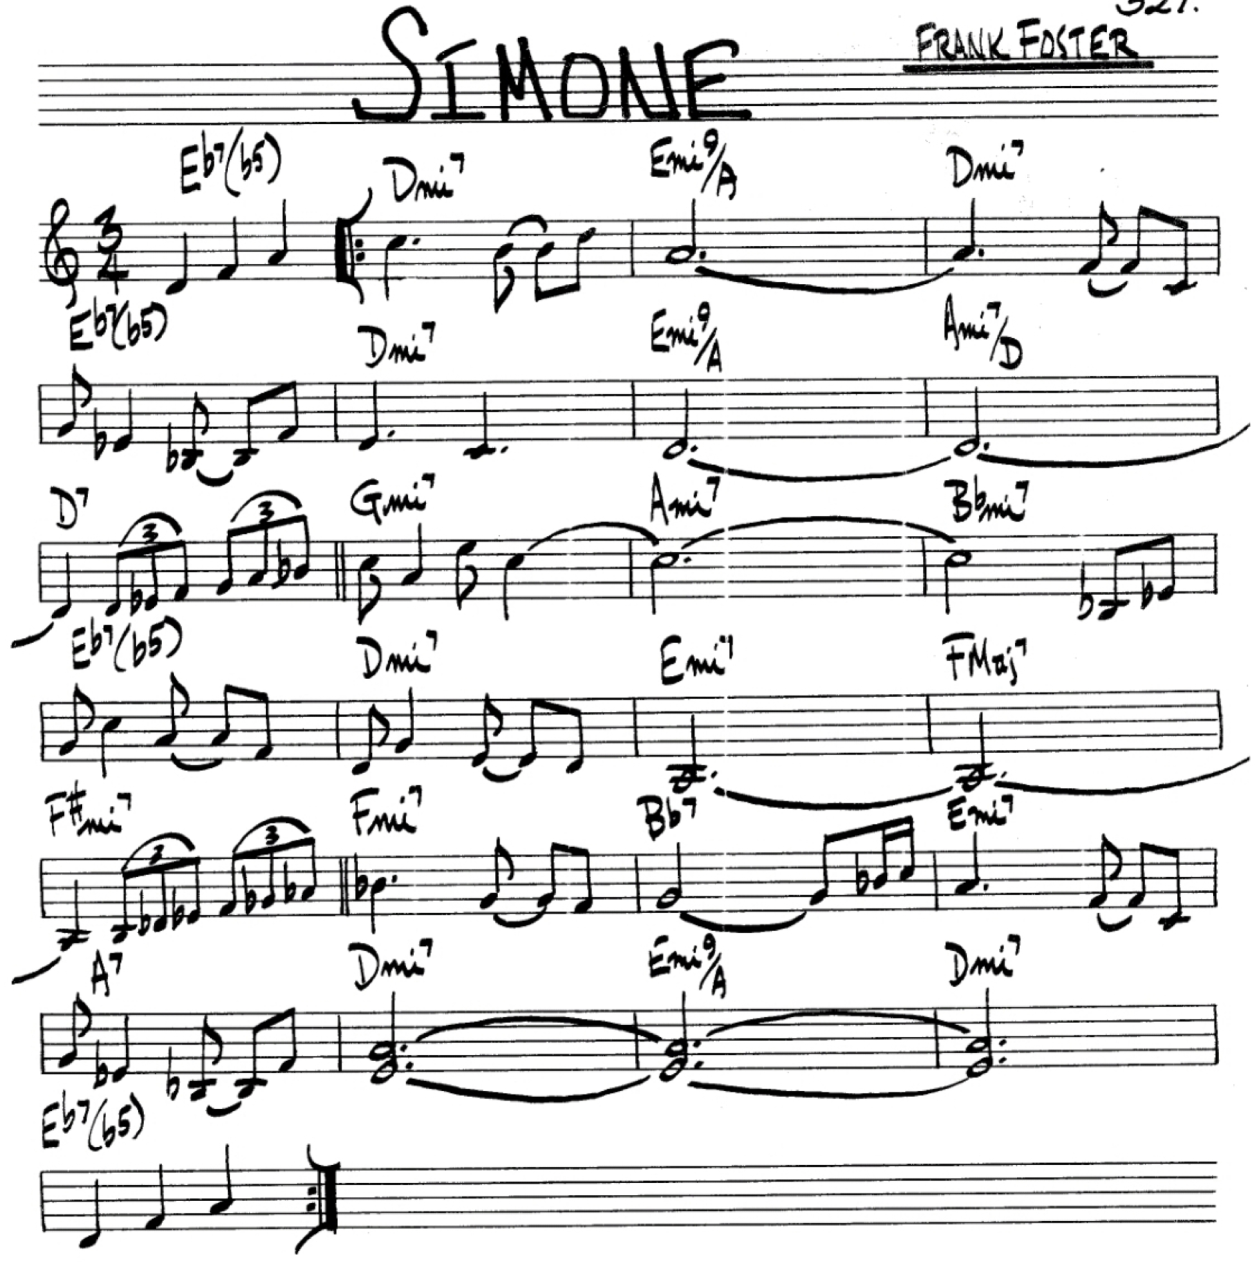 327.
SIMONE
FRANK FOSTER
Eb7(b5) Dmi7 Emi9/A Dmi7
3
4
Eb7(b5) Dmi7 Emi9/A Ami7/D
D7 3 3 Gmi7 Ami7 Bbmi7
Eb7(b5) Dmi7 Emi7 FMaj7
F#mi7 3 3 Fmi7 Bb7 Emi7
A7 Dmi7 Emi9/A Dmi7
Eb7(b5)